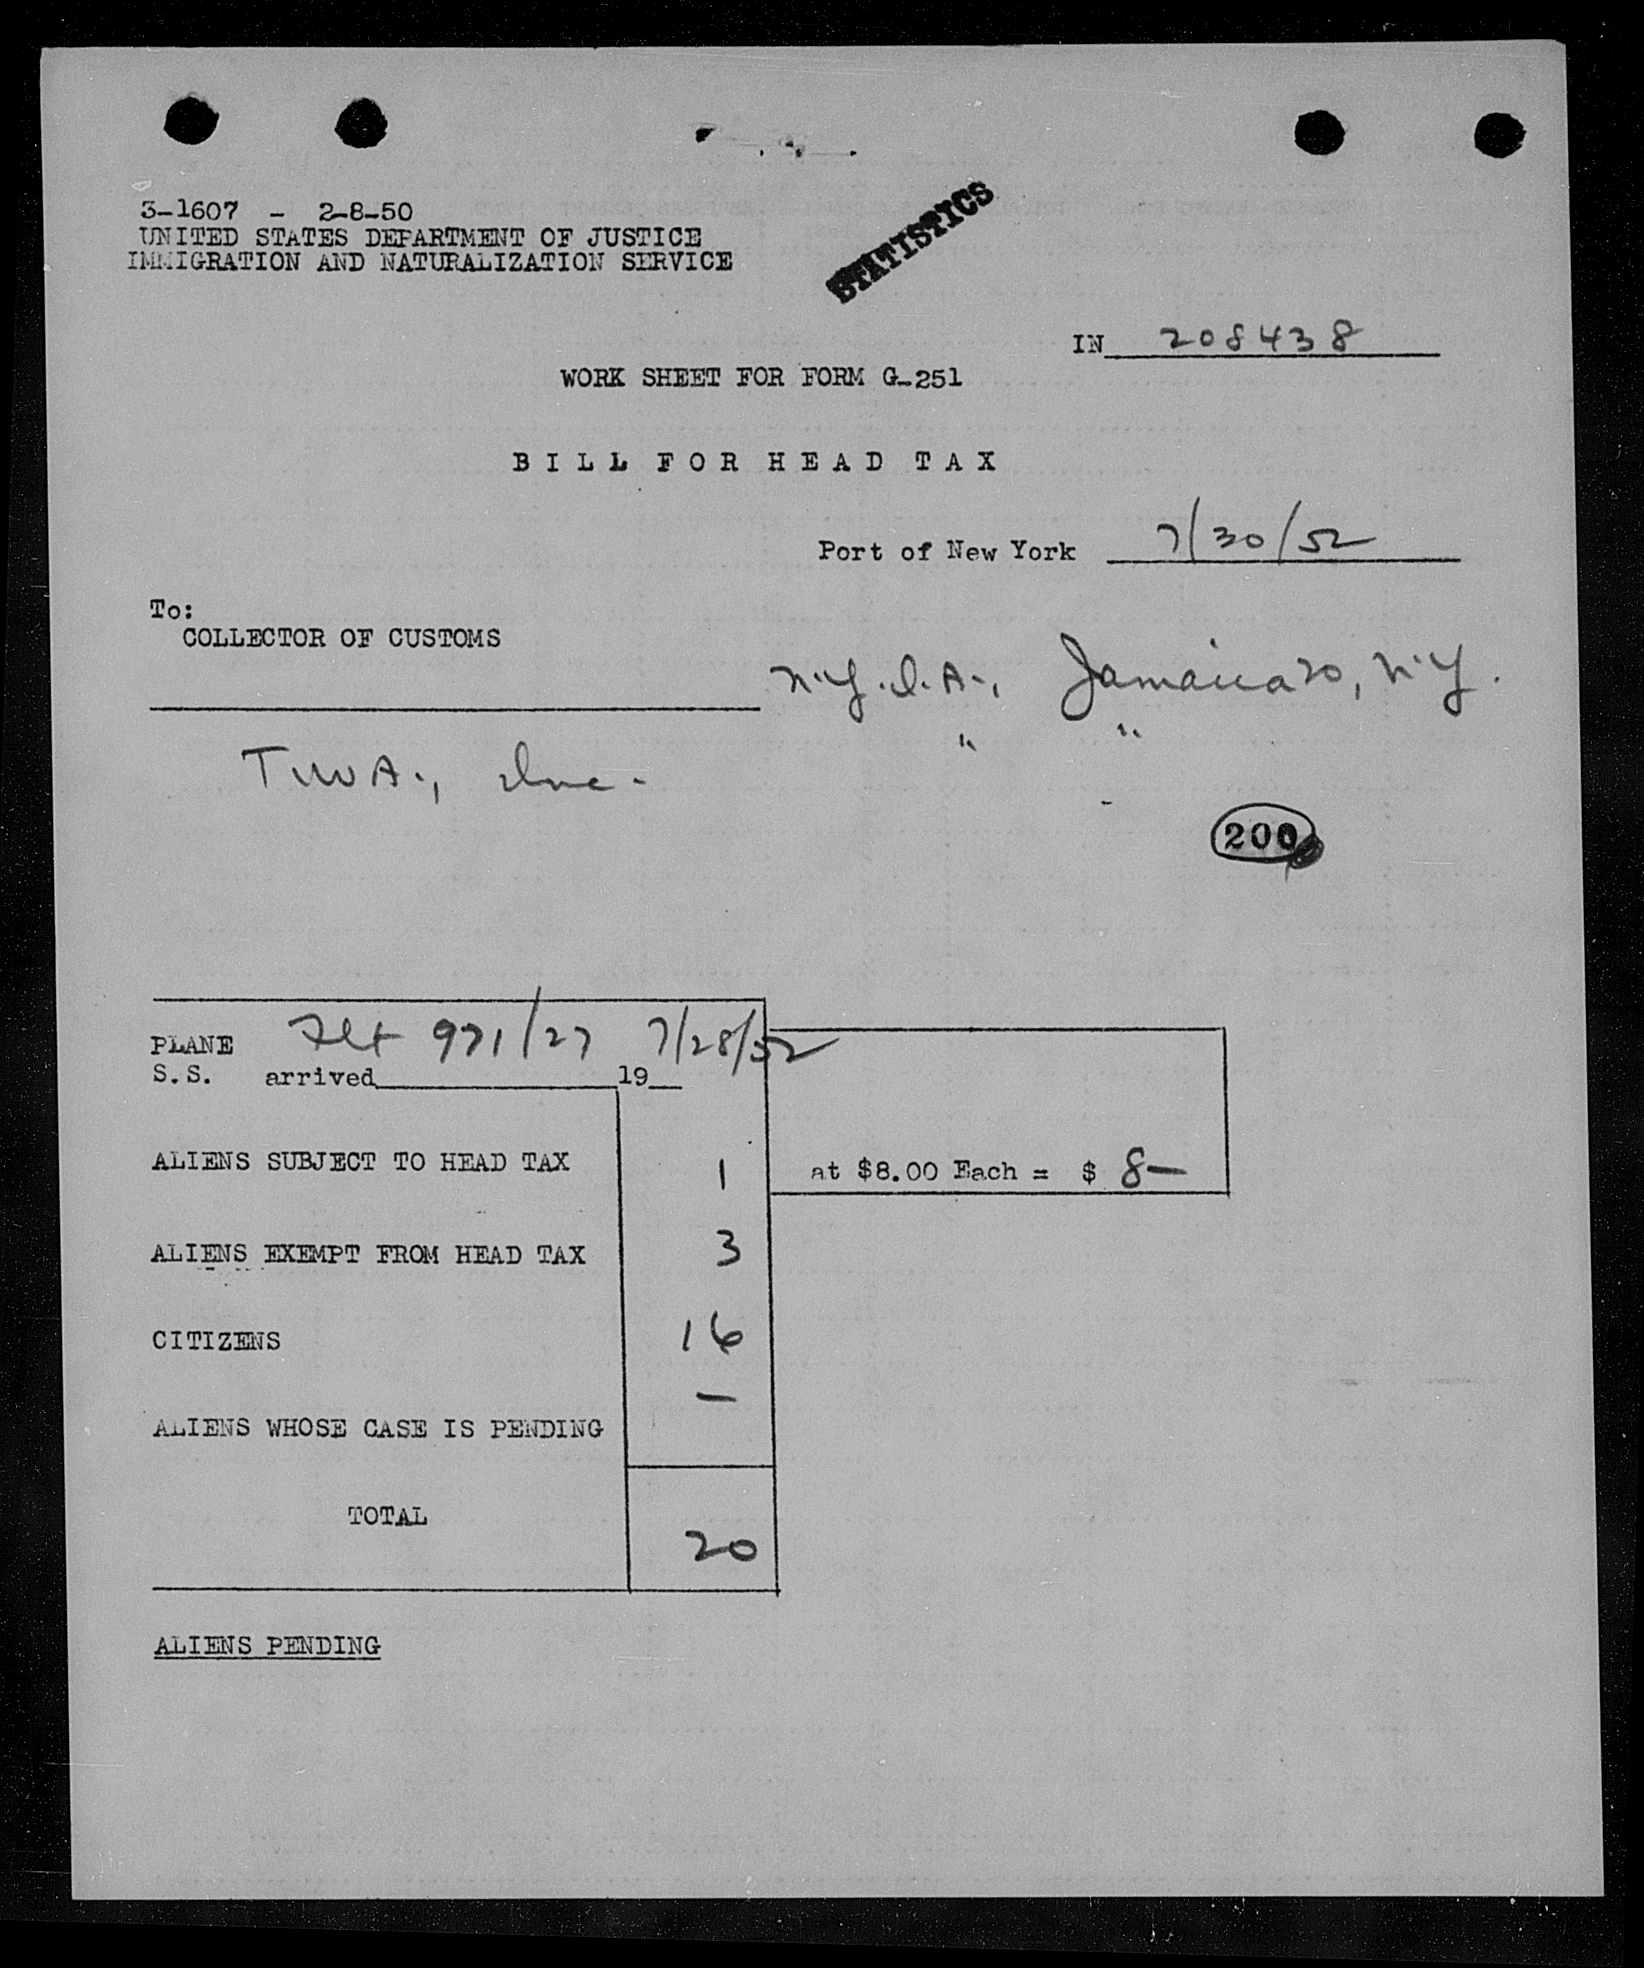 3-1607 - 2-8-50
UNITED STATES DEPARTMENT OF JUSTICE
IMMIGRATION AND NATURALIZATION SERVICE
STATISTICS
IN 208438
WORK SHEET FOR FORM G-251
BILL FOR HEAD TAX
Port of New York 7/30/52
To:
COLLECTOR OF CUSTOMS
N.Y.I.A., Jamaica 20, N.Y.
TWA., Inc. " "
200
PLANE Flt 971/27 7/28/52
S.S. arrived 19
ALIENS SUBJECT TO HEAD TAX 1 at $8.00 Each = $ 8—
ALIENS EXEMPT FROM HEAD TAX 3
CITIZENS 16
ALIENS WHOSE CASE IS PENDING —
TOTAL 20
ALIENS PENDING